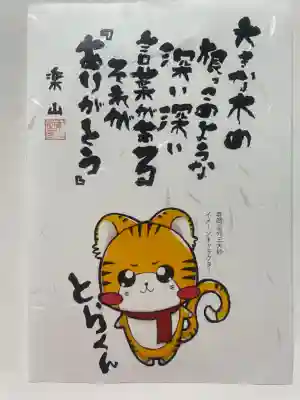 大きな木の
根っこのような
深い深い
言葉がある
それが
『ありがとう』
楽山
イメージキャラクタ
とらくん